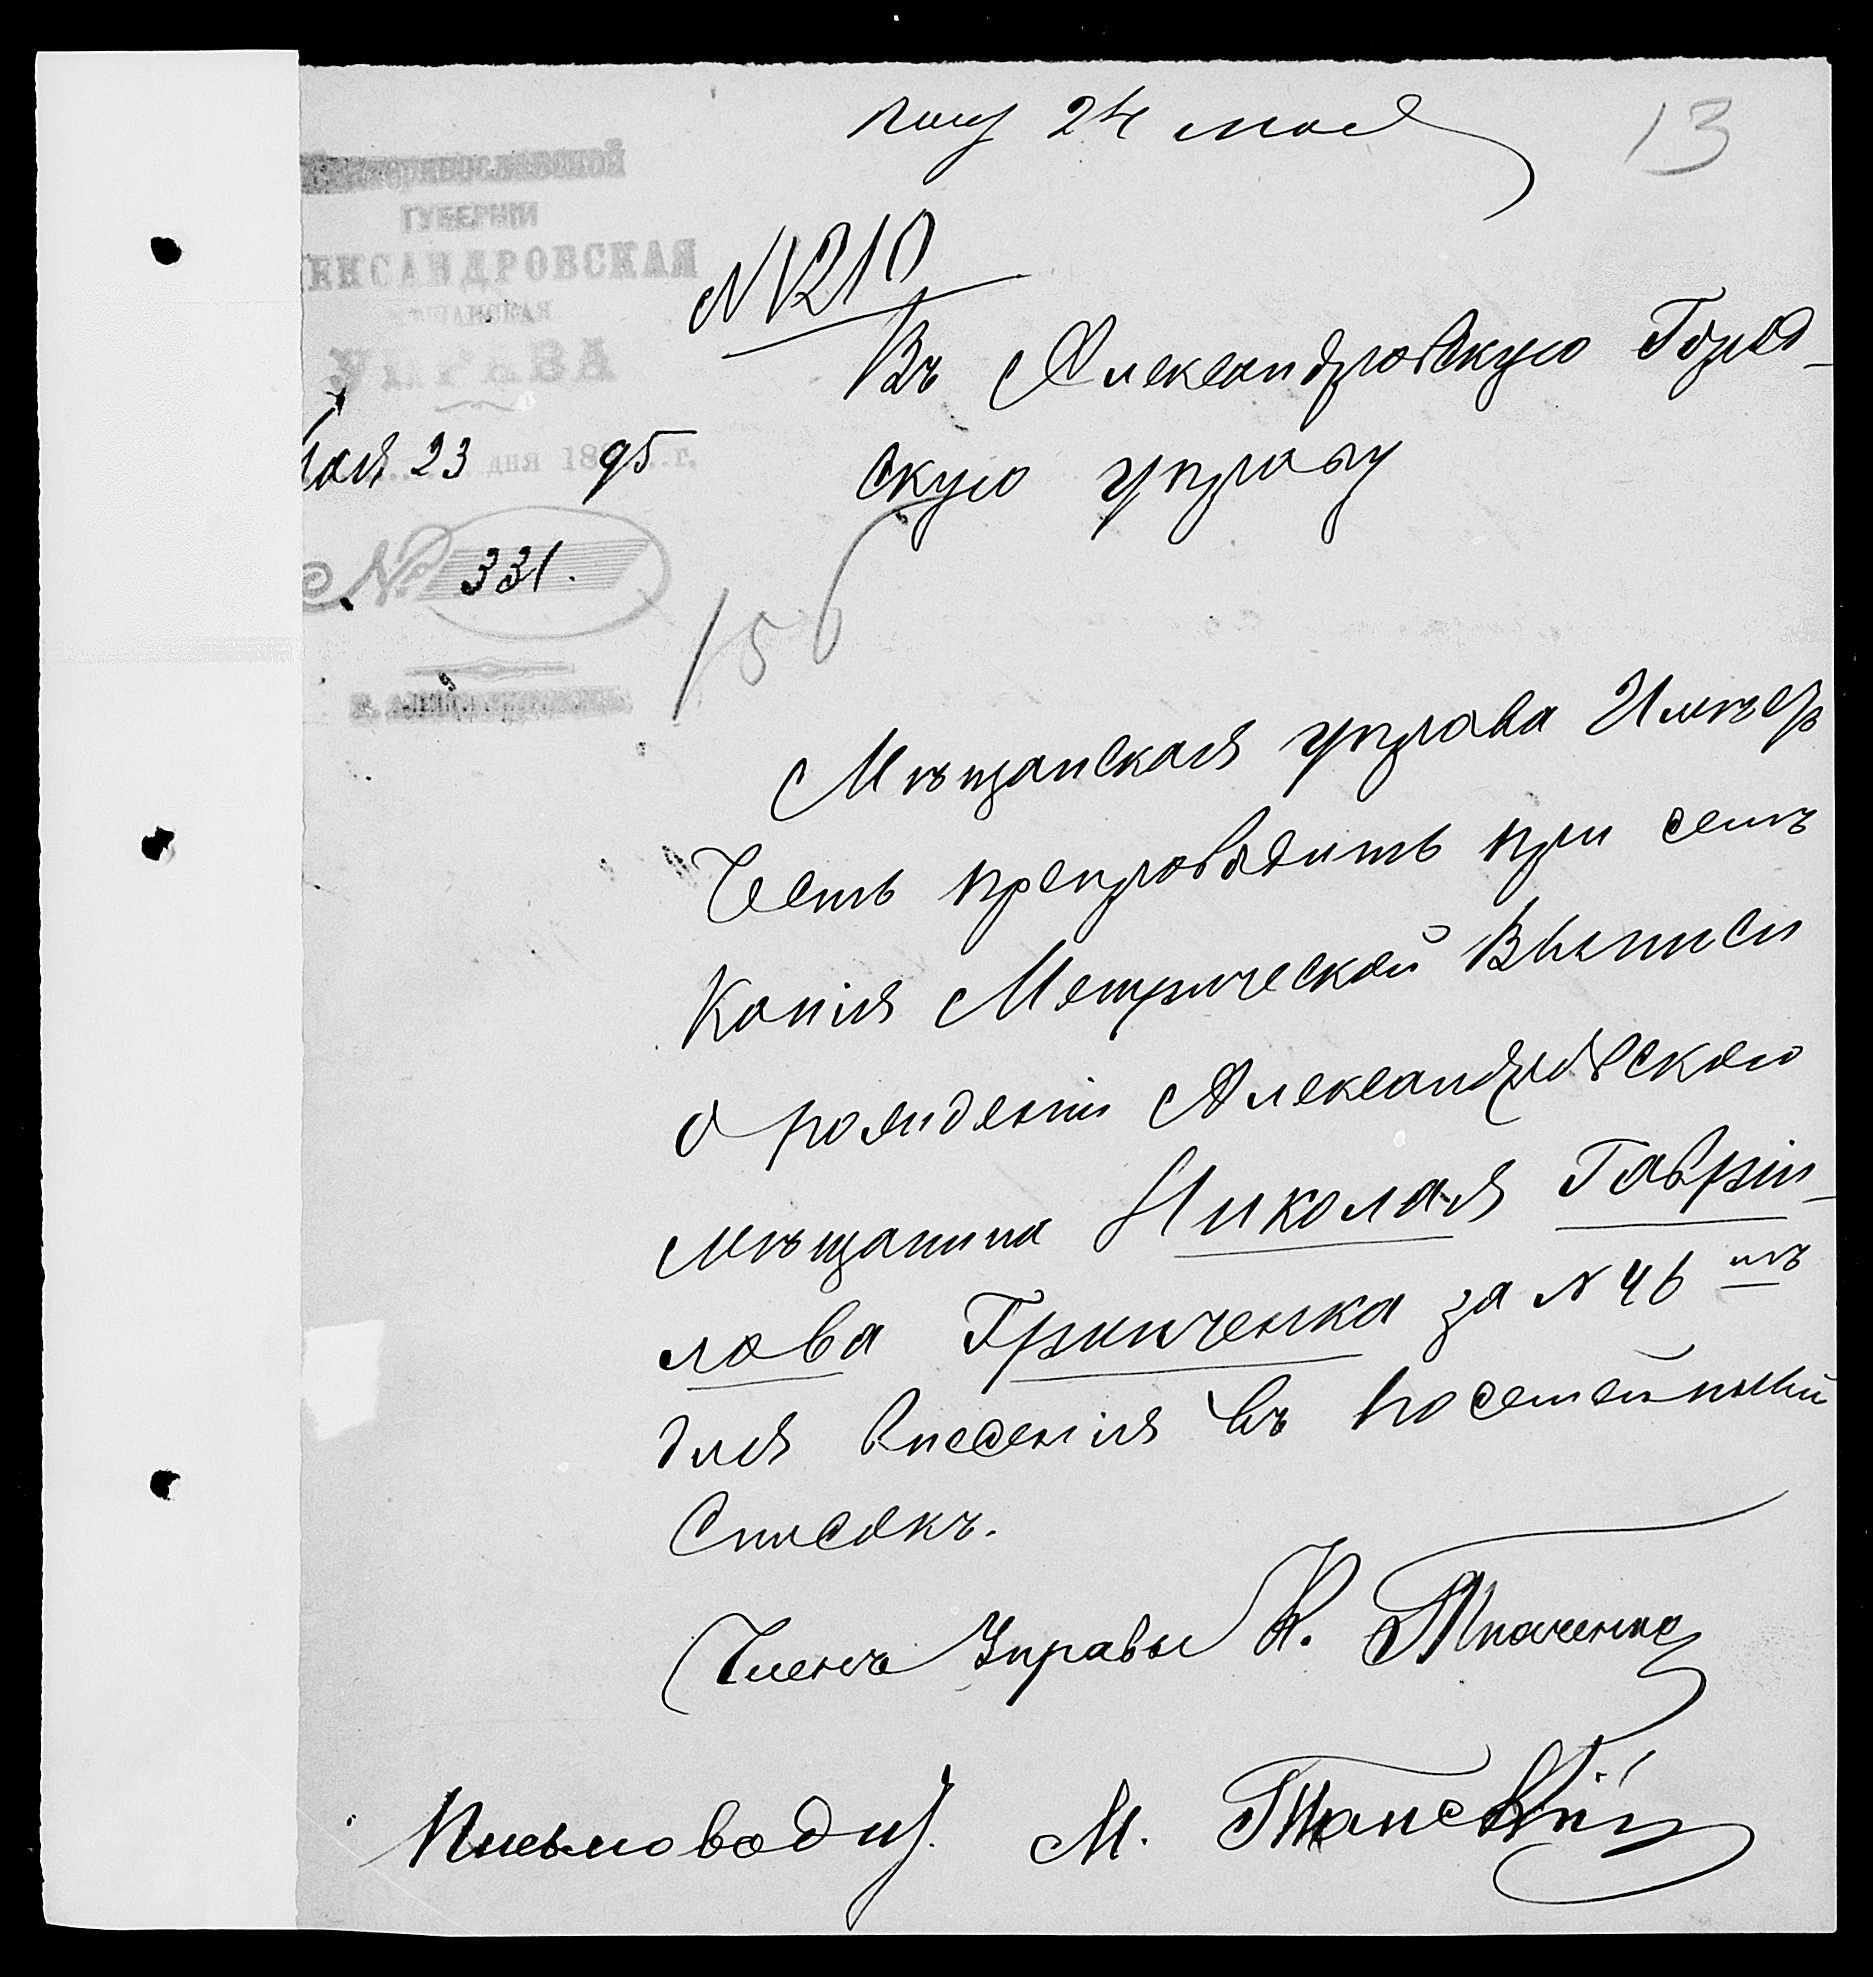 пол 24 мая
13
Екатеринославской
ГУБЕРНІИ
ЛЕКСАНДРОВСКАЯ
МѢЩАНСКАЯ
УПРАВА
Мая 23 дня 1895 г.
№ 331.
г. Александровскъ.
N 1210
Въ Александровскую Город-
скую управу
156
Мѣщанская управа Имѣетъ
Честь препроводить при семъ
Копія Метрической Выписи
о рожденіи Александровского
мѣщанина Николая Гаврі-
лова Гринченка за N 46 мъ
для внесенія въ посемейный
Списокъ.
Членъ Управы К. Ткаченко
Письмоводит. М.